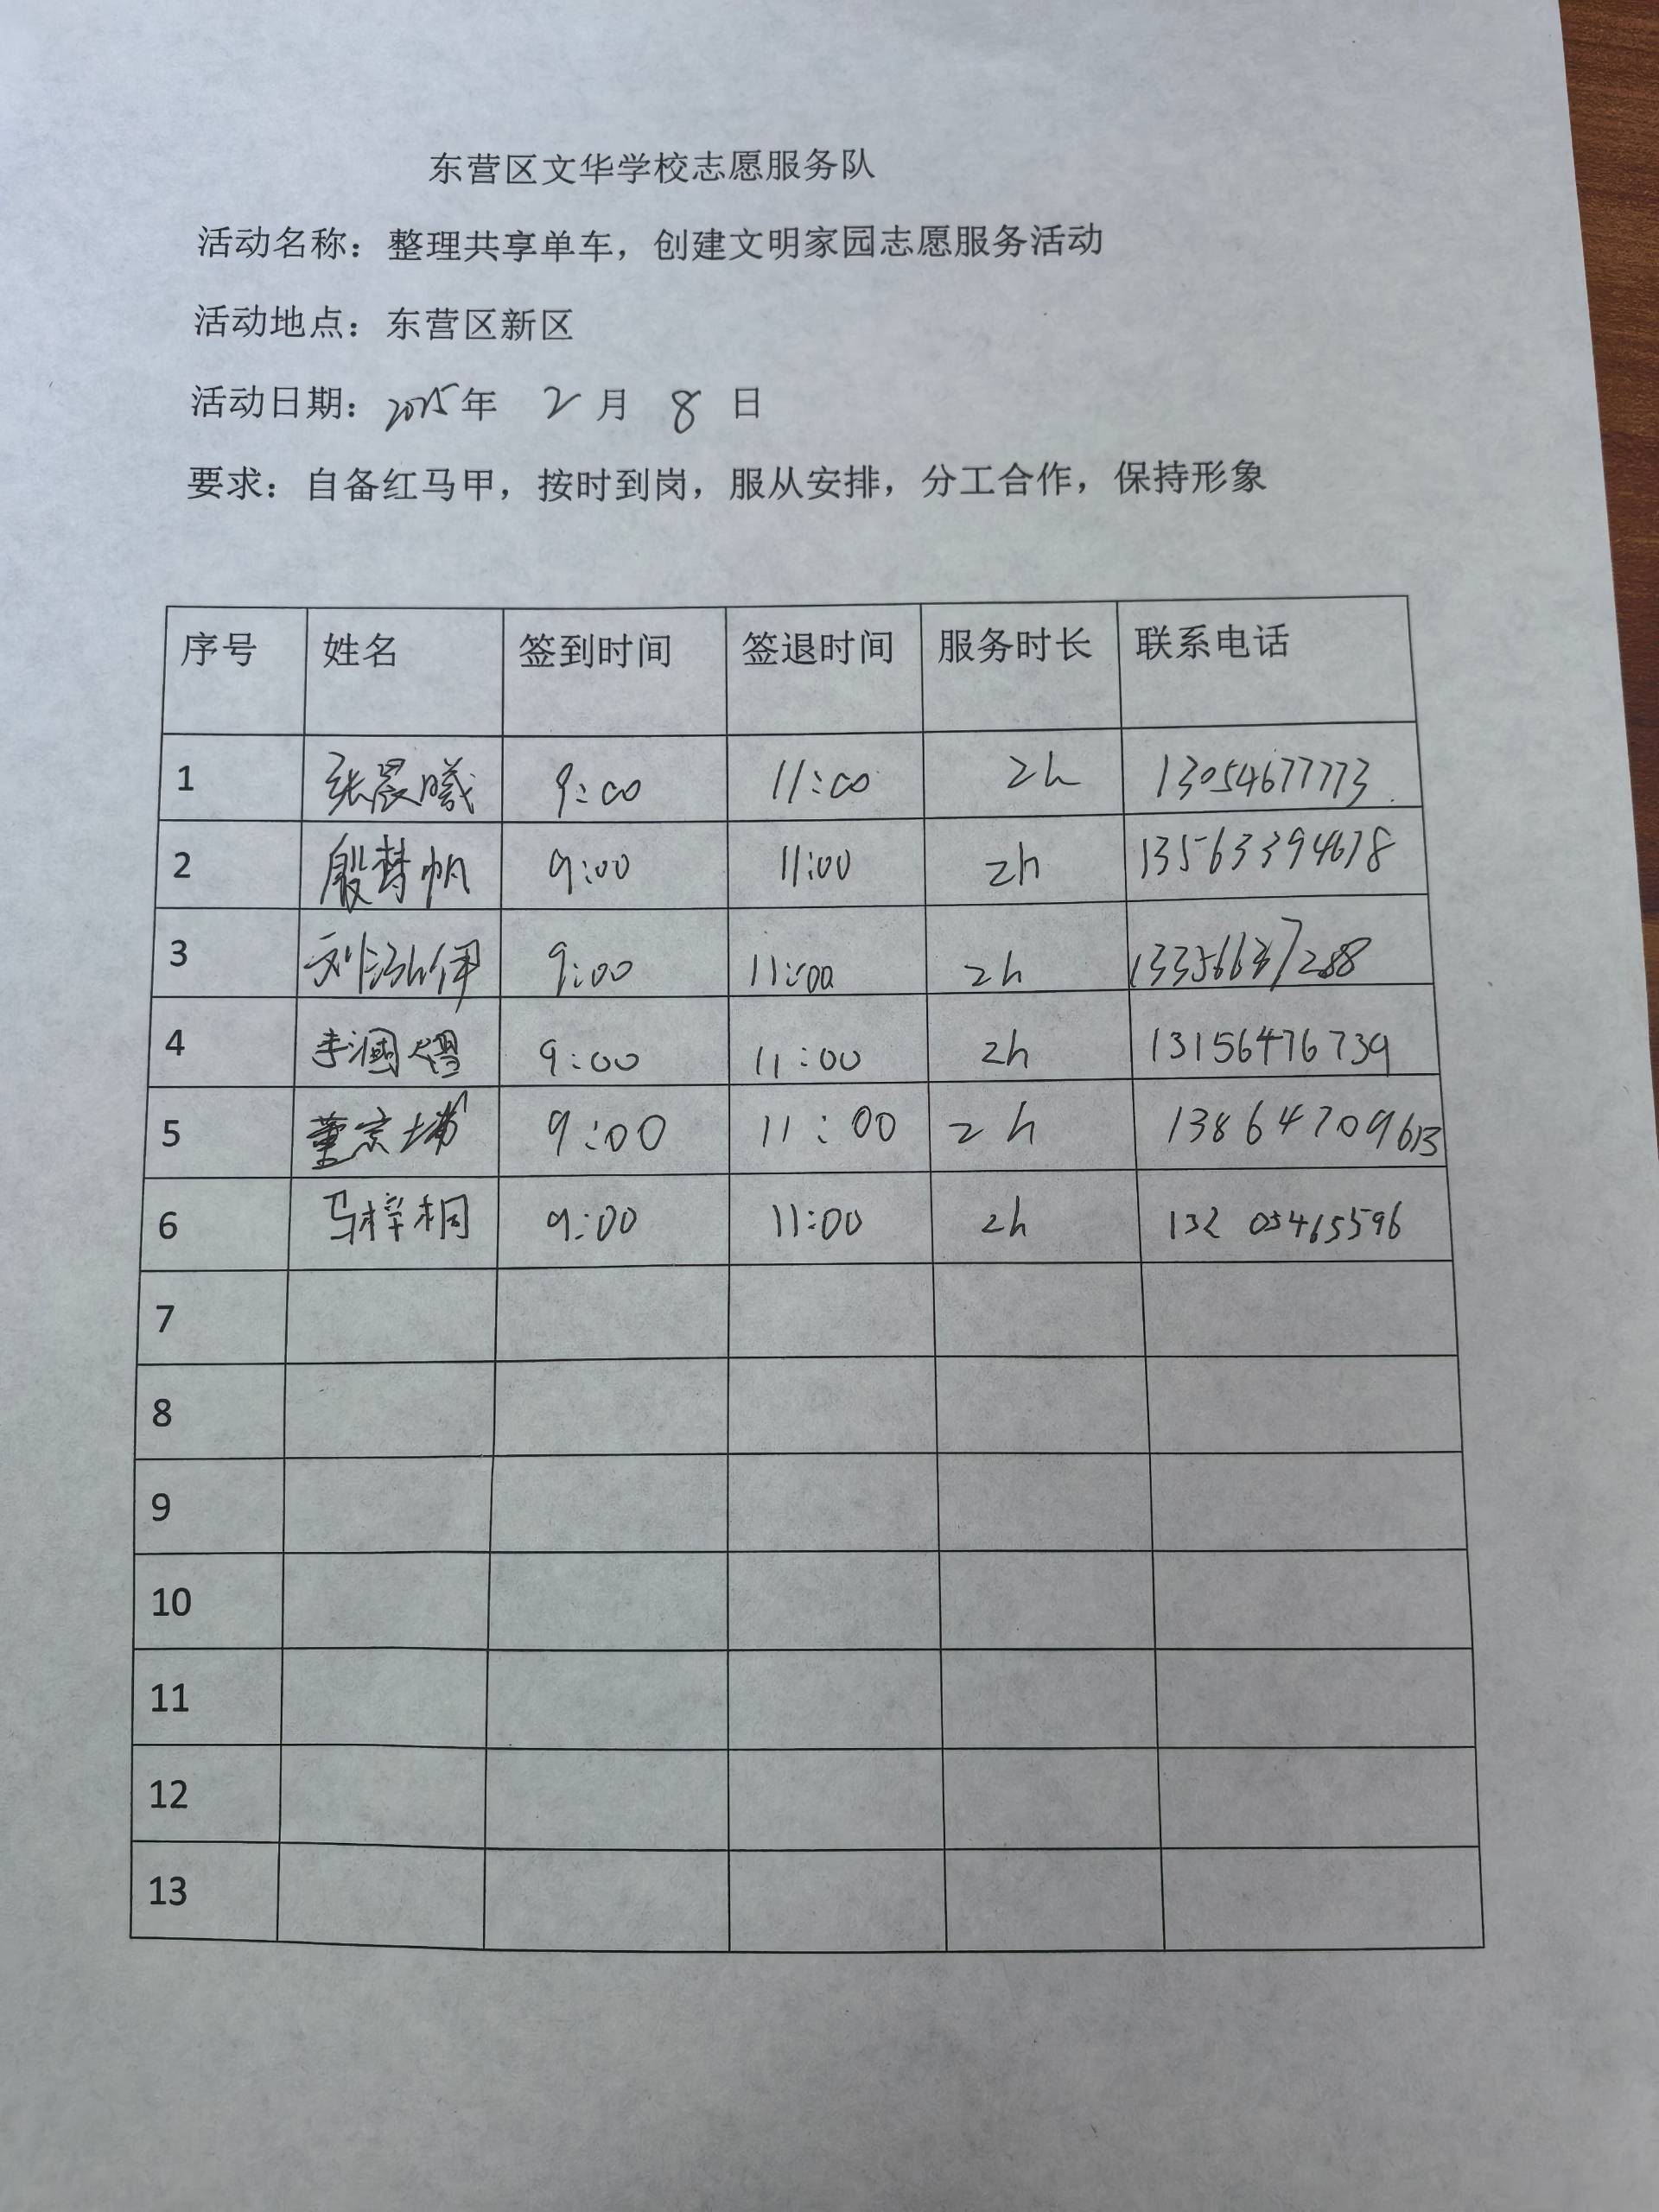 东营区文华学校志愿服务队
活动名称：整理共享单车，创建文明家园志愿服务活动
活动地点：东营区新区
活动日期：2025年 2 月 8 日
要求：自备红马甲，按时到岗，服从安排，分工合作，保持形象
序号 姓名 签到时间 签退时间 服务时长 联系电话
1 张晨曦 9:00 11:00 2h 13054677773
2 殷梦帆 9:00 11:00 2h 13563394678
3 刘泓伊 9:00 11:00 2h 13356637288
4 李 9:00 11:00 2h 13156476739
5 董京埔 9:00 11:00 2h 13864709613
6 马梓桐 9:00 11:00 2h 132 05465596
7
8
9
10
11
12
13